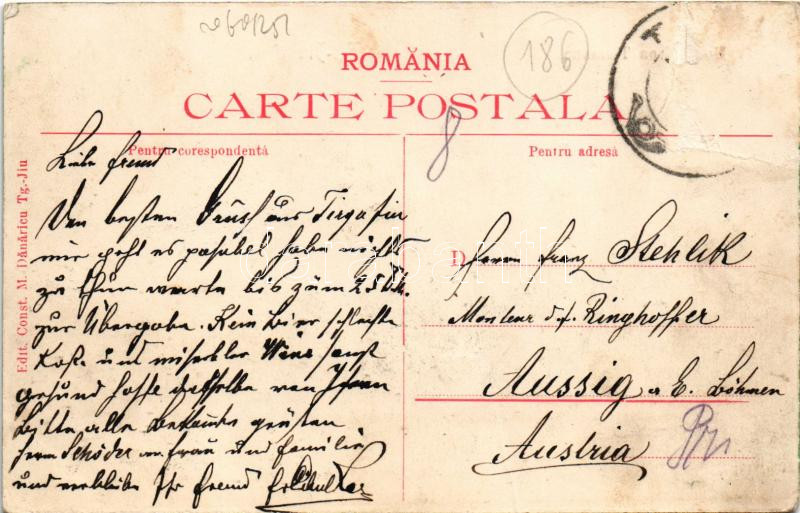 186
ROMÂNIA
CARTE POSTALA
8
Pentru corespondentă
Pentru adresă
Edit. Const. M. Dănăricu Tg.-Jiu
Liebe freund
Den besten Gruss aus Tirgu Jiu
mir geht es pasabel habe nichts
zu thun warte bis zum 25 Okt.
zur Übergabe. Kein Bier schlechte
Kost und miserbler Wein sonst
gesund hoffe dasselbe von Ihnen
Bitte alle Bekannte grüsen
Herrn Schöder Frau und familie
und verbleibe Ihr freund
D Herrn Franz Stehlik
Monteur d. f. Ringhoffer
Aussig a E. Böhmen
Austria